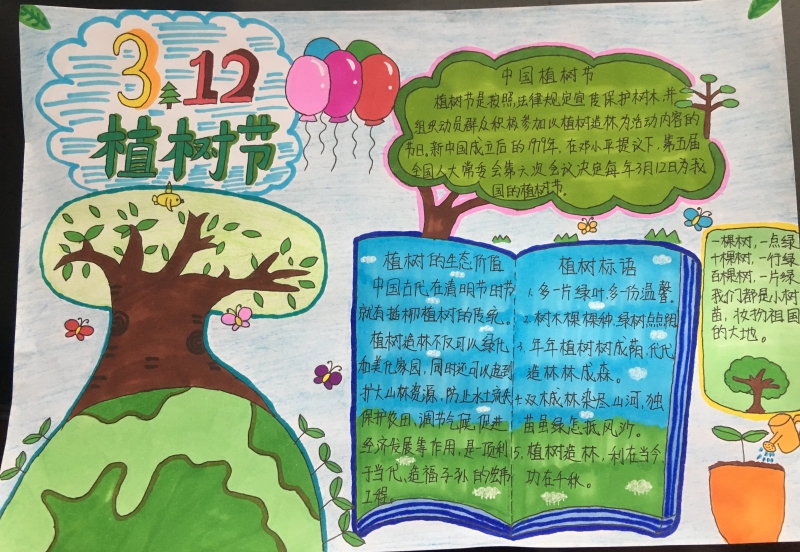 3 12
植树节
中国植树节
植树节是按照法律规定宣传保护树木,并
组织动员群众积极参加以植树造林为活动内容的
节日。新中国成立后的1979年,在邓小平提议下,第五届
全国人大常委会第六次会议决定每年3月12日为我
国的植树节。
植树的生态价值
中国古代在清明节时节
就有插柳植树的传统。
植树造林不仅可以绿化
和美化家园,同时还可以起到
扩大山林资源、防止水土流失
保护农田、调节气候、促进
经济发展等作用,是一项利
于当代、造福子孙的宏伟
工程。
植树标语
1、多一片绿叶,多一份温馨。
2、树木棵棵种,绿树点点翠
3、年年植树树成荫,代代
造林林成森。
4、双木成林染尽山河,独
苗虽绿怎抵风沙。
5、植树造林,利在当今,
功在千秋。
一棵树,一点绿
十棵树,一行绿
百棵树,一片绿
我们都是小树
苗,妆扮祖国
的大地。